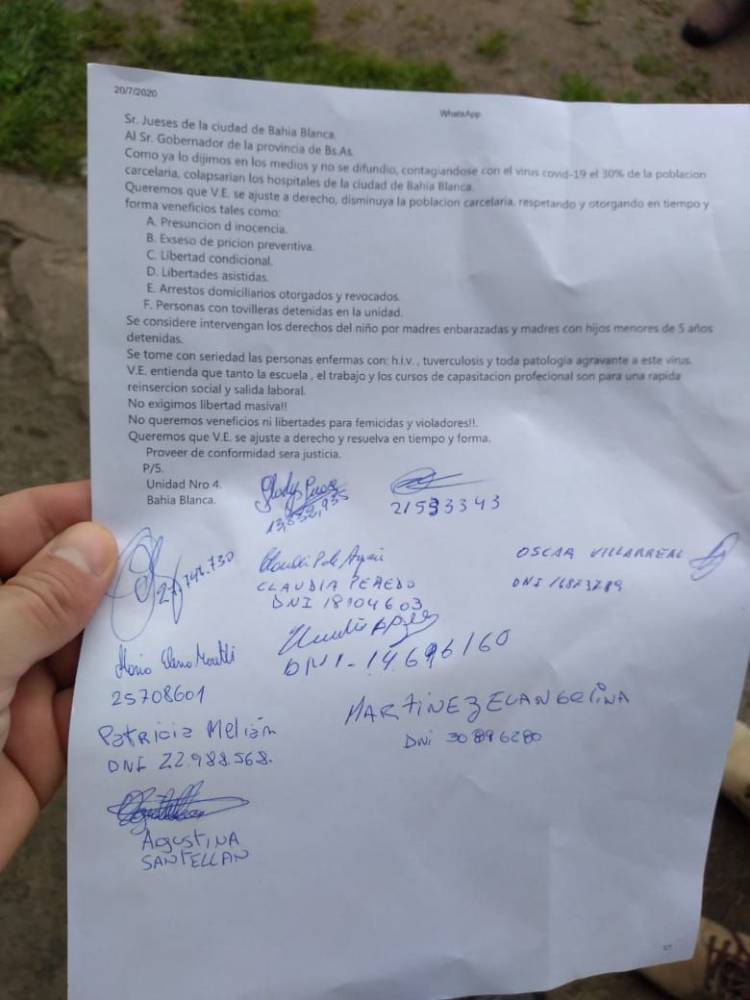 20/7/2020
WhatsApp
Sr. Jueses de la ciudad de Bahia Blanca.
Al Sr. Gobernador de la provincia de Bs.As.
Como ya lo dijimos en los medios y no se difundio, contagiandose con el virus covid-19 el 30% de la poblacion
carcelaria, colapsarian los hospitales de la ciudad de Bahia Blanca.
Queremos que V.E. se ajuste a derecho, disminuya la poblacion carcelaria, respetando y otorgando en tiempo y
forma veneficios tales como:
A. Presuncion d inocencia.
B. Exseso de pricion preventiva.
C. Libertad condicional.
D. Libertades asistidas.
E. Arrestos domiciliarios otorgados y revocados.
F. Personas con tovilleras detenidas en la unidad.
Se considere intervengan los derechos del niño por madres enbarazadas y madres con hijos menores de 5 años
detenidas.
Se tome con seriedad las personas enfermas con: h.i.v. , tuverculosis y toda patologia agravante a este virus.
V.E. entienda que tanto la escuela , el trabajo y los cursos de capasitacion profecional son para una rapida
reinsercion social y salida laboral.
No exigimos libertad masiva!!
No queremos veneficios ni libertades para femicidas y violadores!!.
Queremos que V.E. se ajuste a derecho y resuelva en tiempo y forma.
Proveer de conformidad sera justicia.
P/S.
Unidad Nro 4.
Bahia Blanca.
Gladys
21533343
CLAUDIA PEREDO
DNI 18104603
OSCAR VILLARREAL
DNI
DNI-14.696160
25708601
Patricia Melián
DNI 22.988.568.
MARTINEZ ELANGELINA
DNI 30896280
AGUSTINA
SANTELLAN